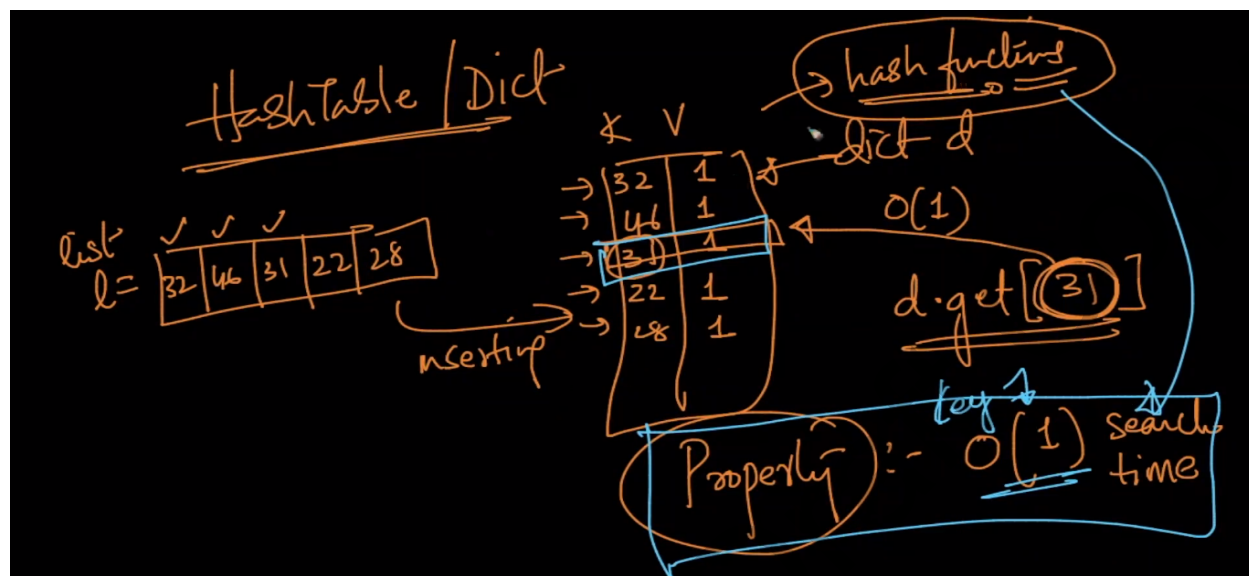 HashTable / Dict
→ hash functions
dict d
K V
32 1
46 1
31 1
22 1
28 1
list
l = 32 46 31 22 28
inserting
O(1)
d.get[31]
key
Property :- O(1) search time